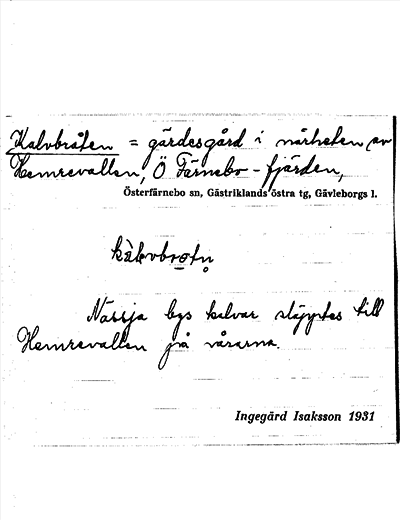 Kalvbråten = gärdesgård i närheten av
Hemrevallen, Ö Färnebo-fjärden,
Österfärnebo sn, Gästriklands östra tg, Gävleborgs l.
Nässja bys kalvar släpptes till
Hemrevallen på vårarna.
Ingegärd Isaksson 1931